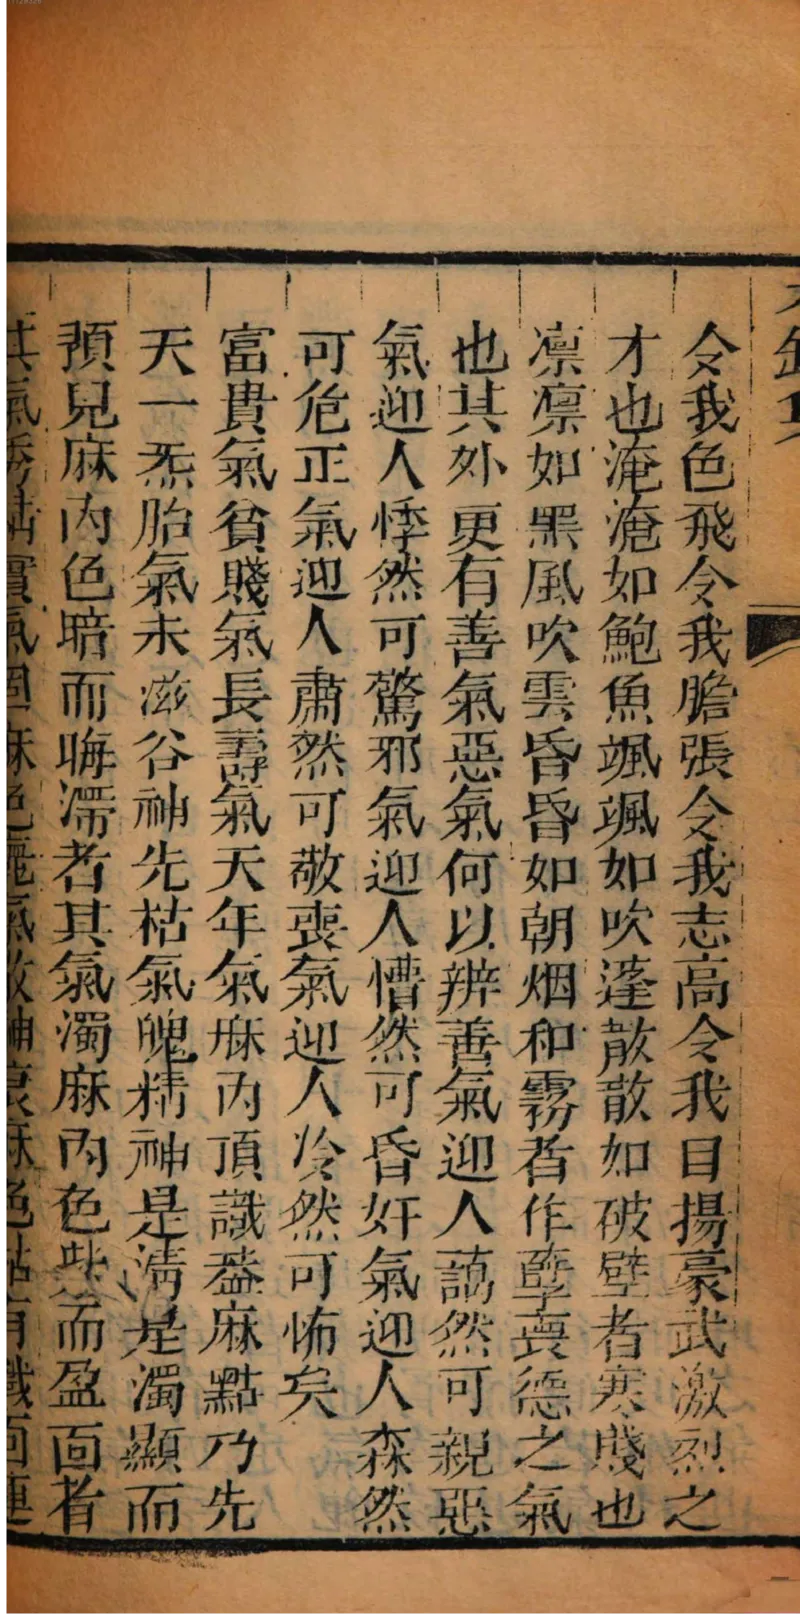 令我色飛令我膽張令我志高令我目揚豪武激烈之
才也淹淹如鮑魚颯颯如吹蓬散散如破壁者寒賤也
凛凛如黑風吹雲昏昏如朝烟和霧者作孽喪德之氣
也其外更有善氣惡氣何以辨善氣迎人藹然可親惡
氣迎人悸然可驚邪氣迎人慒然可昏奸氣迎人森然
可危正氣迎人肅然可敬喪氣迎人冷然可怖矣
富貴氣貧賤氣長壽氣天年氣麻內頂識蓋麻點乃先
天一炁胎氣未滋谷神先枯氣魄精神是清是濁顯而
預兒麻內色暗而晦滯者其氣濁麻內色 而盈面者